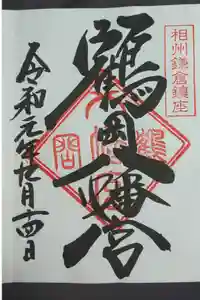 相州鎌倉鎮座
鶴岡八幡宮
令和元年九月十四日